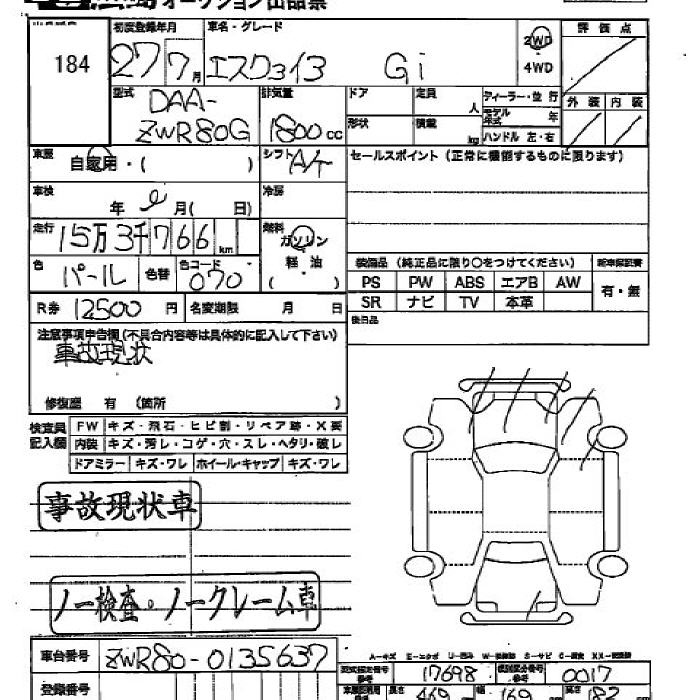 オークション出品票
184
初度登録年月
27 7月
車名・グレード
エスクァイア Gi
2WD
4WD
評価点
外装 内装
型式
DAA-
ZWR80G
排気量
1800cc
ドア 定員 人
形状 積載 kg
ディーラー・並行
モデル年式 年
ハンドル 左・右
車歴 自家用・( )
シフト A/T
セールスポイント(正常に機能するものに限ります)
車検 年 月( 日)
冷房
走行 15万3千766km
燃料 ガソリン
軽・油
( )
色 パール 色替 色コード 070
装備品(純正品に限り〇をつけてください) 新車保証書
PS PW ABS エアB AW 有・無
SR ナビ TV 本革
後日品
R券 12500円 名変期限 月 日
注意事項申告欄(不具合内容等は具体的に記入して下さい)
事故現状
修復歴 有 (箇所 )
検査員記入欄
FW キズ・飛石・ヒビ割・リペア跡・X要
内装 キズ・汚レ・コゲ・穴・スレ・ヘタリ・破レ
ドアミラー キズ・ワレ ホイール・キャップ キズ・ワレ
事故現状車
ノー検査・ノークレーム車
車台番号 ZWR80-0135637
型式指定番号 17698 類別区分番号 0017
登録番号
長さ 469cm 幅 169cm 高さ 182cm